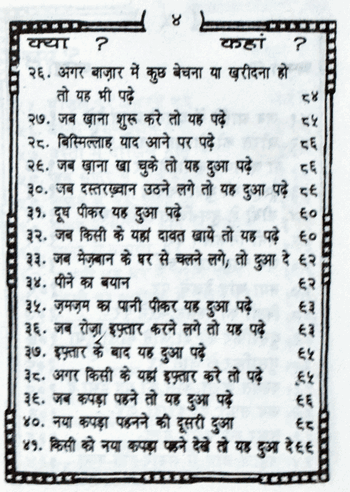 ४
क्या ? कहां ?
२६. अगर बाज़ार में कुछ बेचना या ख़रीदना हो
तो यह भी पढ़े ८४
२७. जब ख़ाना शुरू करे तो यह पढ़े ८५
२८. बिस्मिल्लाह याद आने पर पढ़े ८६
२९. जब ख़ाना खा चुके तो यह दुआ पढ़े ८६
३०. जब दस्तरख़्वान उठने लगे तो यह दुआ पढ़े ८९
३१. दूध पीकर यह दुआ पढ़े ९०
३२. जब किसी के यहां दावत खाये तो यह पढ़े ९०
३३. जब मेज़बान के घर से चलने लगे, तो दुआ दे ९२
३४. पीने का बयान ९२
३५. ज़मज़म का पानी पीकर यह दुआ पढ़े ९३
३६. जब रोज़ा इफ़्तार करने लगे तो यह पढ़े ९३
३७. इफ़्तार के बाद यह दुआ पढ़े ९५
३८. अगर किसी के यहां इफ़्तार करे तो पढ़े ९५
३९. जब कपड़ा पहने तो यह दुआ पढ़े ९६
४०. नया कपड़ा पहनने की दूसरी दुआ ९८
४१. किसी को नया कपड़ा पहने देखे तो यह दुआ दे ९९